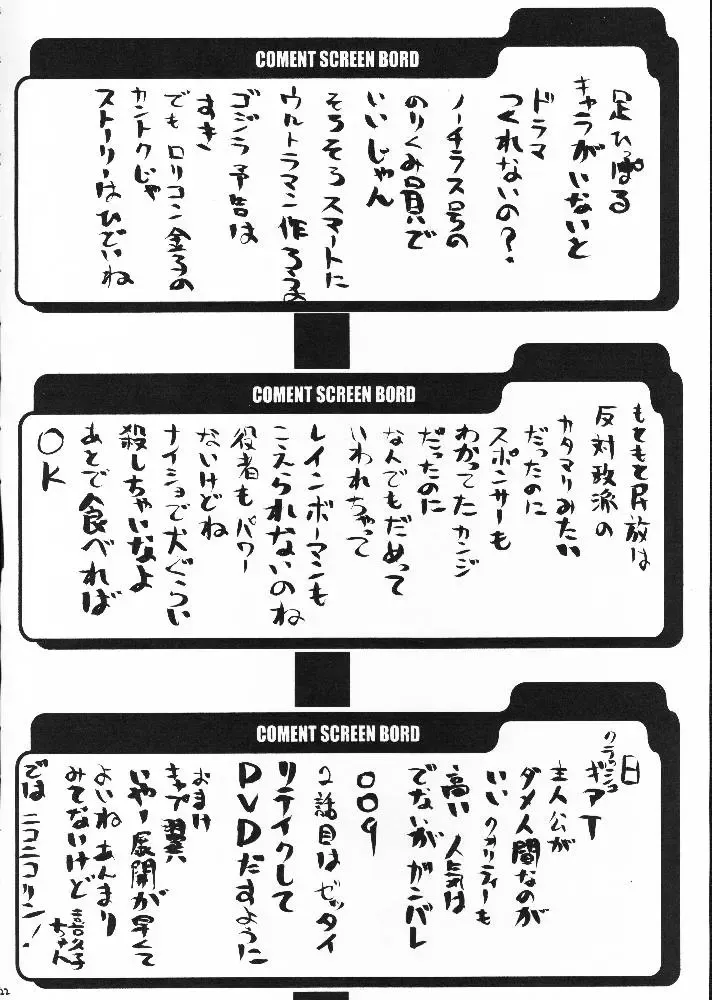 COMENT SCREEN BORD
足ひっぱる
キャラがいないと
ドラマ
つくれないの？.
ノーチラス号の
のりくみ員で
いいじゃん
そろそろスマートに
ウルトラマン作ろうよ
ゴジラ予告は
すき、
でもロリコン金子の
カントクじゃ
ストーリーはひどいね
COMENT SCREEN BORD
もともと民放は
反対政派の
カタマリみたい
だったのに
スポンサーも
わかってたカンジ
だったのに
なんでもだめって
いわれちゃって
レインボーマンも
こえられないのね
役者もパワー
ないけどね
ナイショで犬ぐらい
殺しちゃいなよ
あとで食べれば
OK
COMENT SCREEN BORD
日
クラッシュ
ギアT
主人公が
ダメ人間なのが
いいクオリティーも
高い人気は
でないがガンバレ
009
2話目はゼッタイ
リテイクして
DVDだすように
おまけ
キャプ翼
いやー展開が早くて
よいねあんまり
みてないけど
喜久子ちゃん
では ニコニコリン！
22